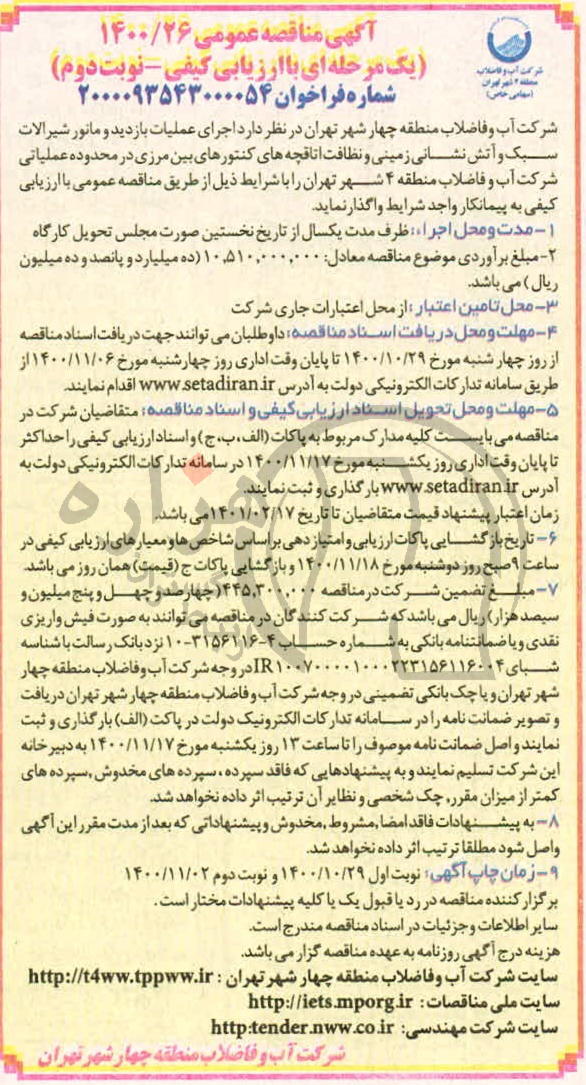 آگهی مناقصه عمومی ۱۴۰۰/۲۶
(یک مرحله ای با ارزیابی کیفی – نوبت دوم)
شماره فراخوان ۲۰۰۰۰۹۳۵۴۳۰۰۰۰۵۴
شرکت آب و فاضلاب
منطقه ۴ شهر تهران
(سهامی خاص)
شرکت آب و فاضلاب منطقه چهار شهر تهران در نظر دارد اجرای عملیات بازدید و مانور شیرالات
سبک و آتش نشانی زمینی و نظافت اتاقچه های کنتور های بین مرزی در محدوده عملیاتی
شرکت آب و فاضلاب منطقه ۴ شهر تهران را با شرایط ذیل از طریق مناقصه عمومی با ارزیابی
کیفی به پیمانکار واجد شرایط واگذار نماید.
۱- مدت و محل اجراء: ظرف مدت یکسال از تاریخ نخستین صورت مجلس تحویل کارگاه
۲- مبلغ برآوردی موضوع مناقصه معادل: ۱۰,۵۱۰,۰۰۰,۰۰۰ (ده میلیارد و پانصد و ده میلیون
ریال) می باشد.
۳- محل تامین اعتبار: از محل اعتبارات جاری شرکت
۴- مهلت و محل دریافت اسناد مناقصه: داوطلبان می توانند جهت دریافت اسناد مناقصه
از روز چهار شنبه مورخ ۱۴۰۰/۱۰/۲۹ تا پایان وقت اداری روز چهارشنبه مورخ ۱۴۰۰/۱۱/۰۶ از
طریق سامانه تدارکات الکترونیکی دولت به آدرس www.setadiran.ir اقدام نمایند.
۵- مهلت و محل تحویل اسناد ارزیابی کیفی و اسناد مناقصه: متقاضیان شرکت در
مناقصه می بایست کلیه مدارک مربوط به پاکات (الف، ب، ج) و اسناد ارزیابی کیفی را حداکثر
تا پایان وقت اداری روز یکشنبه مورخ ۱۴۰۰/۱۱/۱۷ در سامانه تدارکات الکترونیکی دولت به
آدرس www.setadiran.ir بارگذاری و ثبت نمایند.
زمان اعتبار پیشنهاد قیمت متقاضیان تا تاریخ ۱۴۰۱/۰۲/۱۷ می باشد.
۶- تاریخ بازگشایی پاکات ارزیابی و امتیاز دهی بر اساس شاخص ها و معیارهای ارزیابی کیفی در
ساعت ۹ صبح روز دوشنبه مورخ ۱۴۰۰/۱۱/۱۸ و بازگشایی پاکات ج (قیمت) همان روز می باشد.
۷- مبلغ تضمین شرکت در مناقصه ۴۴۵,۳۰۰,۰۰۰ (چهارصد و چهل و پنج میلیون و
سیصد هزار) ریال می باشد که شرکت کنندگان در مناقصه می توانند به صورت فیش واریزی
نقدی و یا ضمانتنامه بانکی به شماره حساب ۴-۳۱۵۶۱۱۶-۱۰ نزد بانک رسالت با شناسه
شبای IR۱۰۰۷۰۰۰۰۱۰۰۰۲۲۳۱۵۶۱۱۶۰۰۴ در وجه شرکت آب و فاضلاب منطقه چهار
شهر تهران و یا چک بانکی تضمینی در وجه شرکت آب و فاضلاب منطقه چهار شهر تهران دریافت
و تصویر ضمانت نامه را در سامانه تدارکات الکترونیک دولت در پاکت (الف) بارگذاری و ثبت
نمایند و اصل ضمانت نامه موصوف را تا ساعت ۱۳ روز یکشنبه مورخ ۱۴۰۰/۱۱/۱۷ به دبیرخانه
این شرکت تسلیم نمایند و به پیشنهادهایی که فاقد سپرده، سپرده های مخدوش، سپرده های
کمتر از میزان مقرر، چک شخصی و نظایر آن ترتیب اثر داده نخواهد شد.
۸- به پیشنهادات فاقد امضا, مشروط, مخدوش و پیشنهاداتی که بعد از مدت مقرر این آگهی
واصل شود مطلقا ترتیب اثر داده نخواهد شد.
۹- زمان چاپ آگهی: نوبت اول ۱۴۰۰/۱۰/۲۹ و نوبت دوم ۱۴۰۰/۱۱/۰۲
برگزار کننده مناقصه در رد یا قبول یک یا کلیه پیشنهادات مختار است.
سایر اطلاعات و جزئیات در اسناد مناقصه مندرج است.
هزینه درج آگهی روزنامه به عهده مناقصه گزار می باشد.
سایت شرکت آب و فاضلاب منطقه چهار شهر تهران: http://t4ww.tppww.ir
سایت ملی مناقصات: http://iets.mporg.ir
سایت شرکت مهندسی: http:tender.nww.co.ir
شرکت آب و فاضلاب منطقه چهار شهر تهران